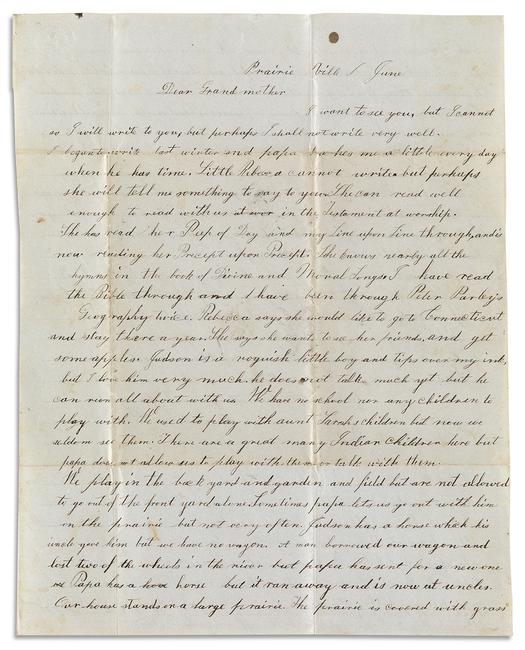 Prairie Ville June
Dear Grand mother
I want to see you, but I cannot
so I will write to you, but perhaps I shall not write very well.
I began to write last winter and papa teaches me a little every day
when he has time. Little Rebecca cannot write but perhaps
she will tell me something to say to you. She can read well
enough to read with us at over in the Testament at worship.
She has read her Peep of Day and my Line upon Line through, and is
now reading her Precept upon Precept. She knows nearly all the
hymns in the book of Divine and Moral Songs. I have read
the Bible through and I have been through Peter Parley's
Geography twice. Rebecca says she would like to go to Connecticut
and stay there a year. She says she wants to see her friends, and get
some apples. Judson is a roguish little boy and tips over my ink,
but I love him very much. he does not talk much yet but he
can run all about with us. We have no school nor any children to
play with. We used to play with aunt Sarahs children but now we
seldom see them. There are a great many Indian children here but
papa does not allow us to play with them or talk with them.
We play in the back yard and garden and field but are not allowed
to go out of the front yard alone. Sometimes papa lets us go out with him
on the prairie but not very often. Judson has a horse which his
uncle gave him but we have no wagon. A man borrowed our wagon and
lost two of the wheels in the river but papa has sent for a new one
Papa has a horse but it ran away and is now at uncles.
Our house stands on a large prairie. The prairie is covered with grass